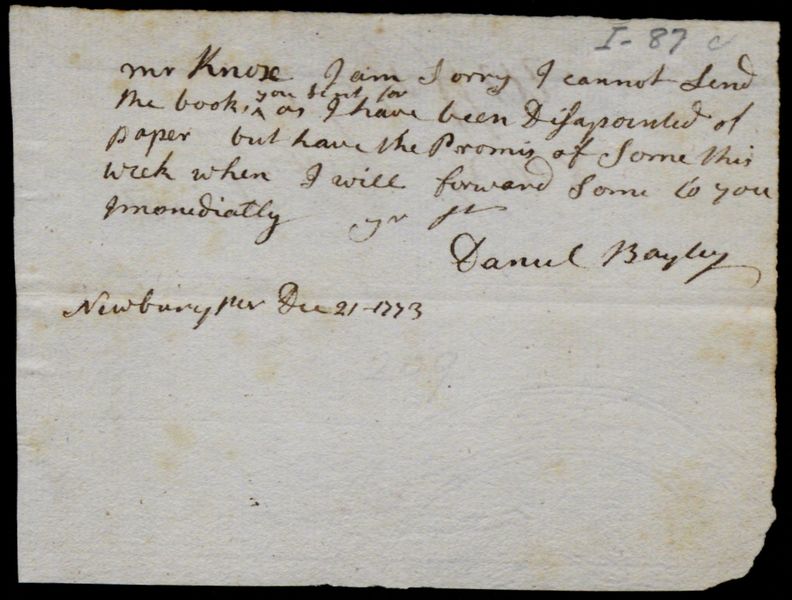 I-87 c
mr Knox I am Sorry I cannot Send
the books, you sent for as I have been Disapointed of
paper but have the Promis of Some this
week when I will forward Some to you
Immediatly yr
Daniel Bayley
Newbury Dec 21-1773
209